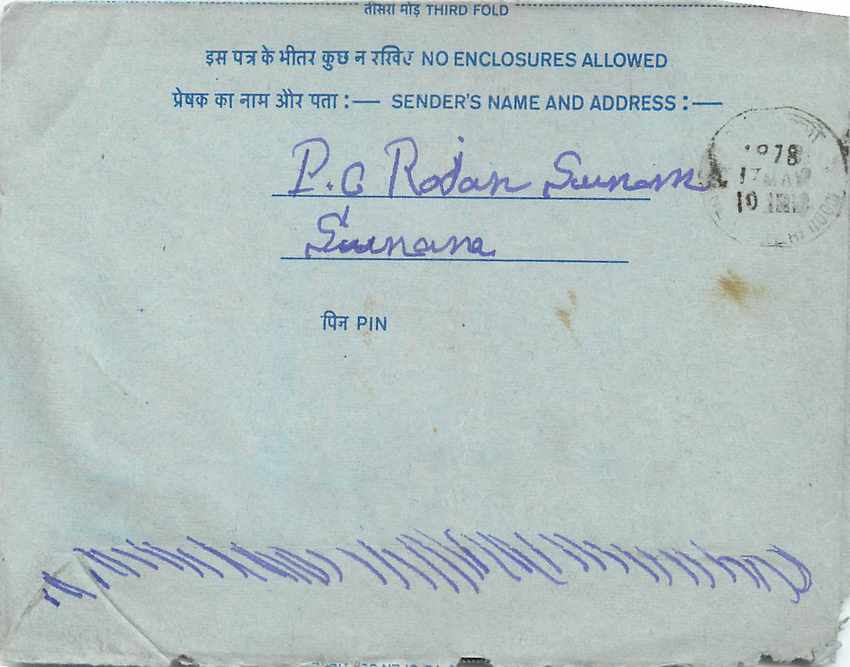 तीसरा मोड़ THIRD FOLD
इस पत्र के भीतर कुछ न रखिए NO ENCLOSURES ALLOWED
प्रेषक का नाम और पता :— SENDER'S NAME AND ADDRESS :—
P.C Rajan
1978
17
10
पिन PIN